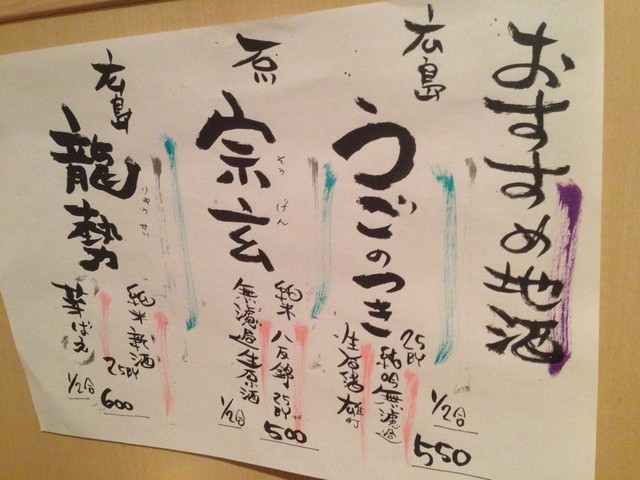 おすすめ地酒
広島
うごのつき
25BY
純吟無濾過
生原酒 雄町
1/2合
550
石川
宗玄
そうげん
純米 八反錦 25BY
無濾過生原酒
1/2合
500
広島
龍勢
りゅうせい
純米新酒
25BY
華ばえ
1/2合
600